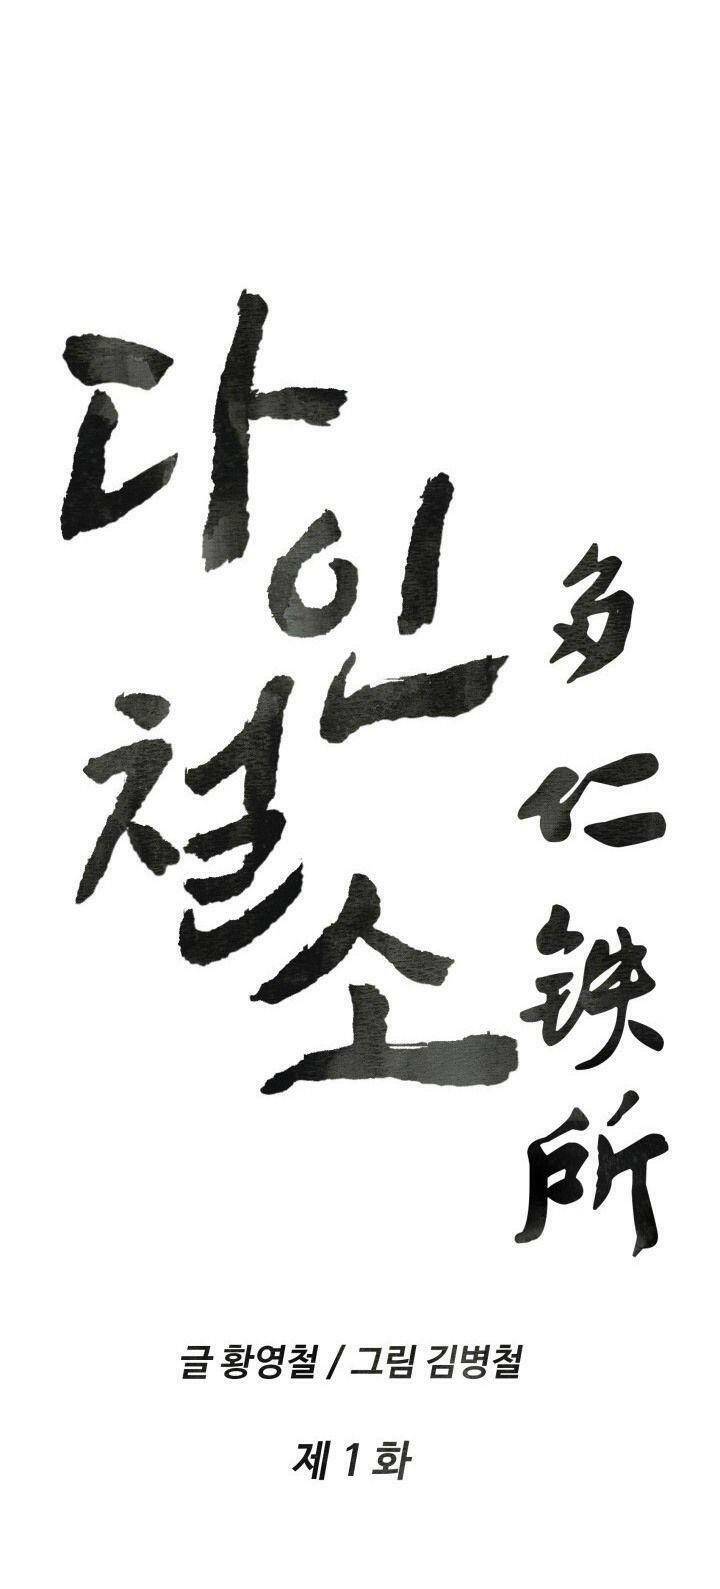 다인
철소
多仁鉄所
글 황영철 / 그림 김병철
제 1 화